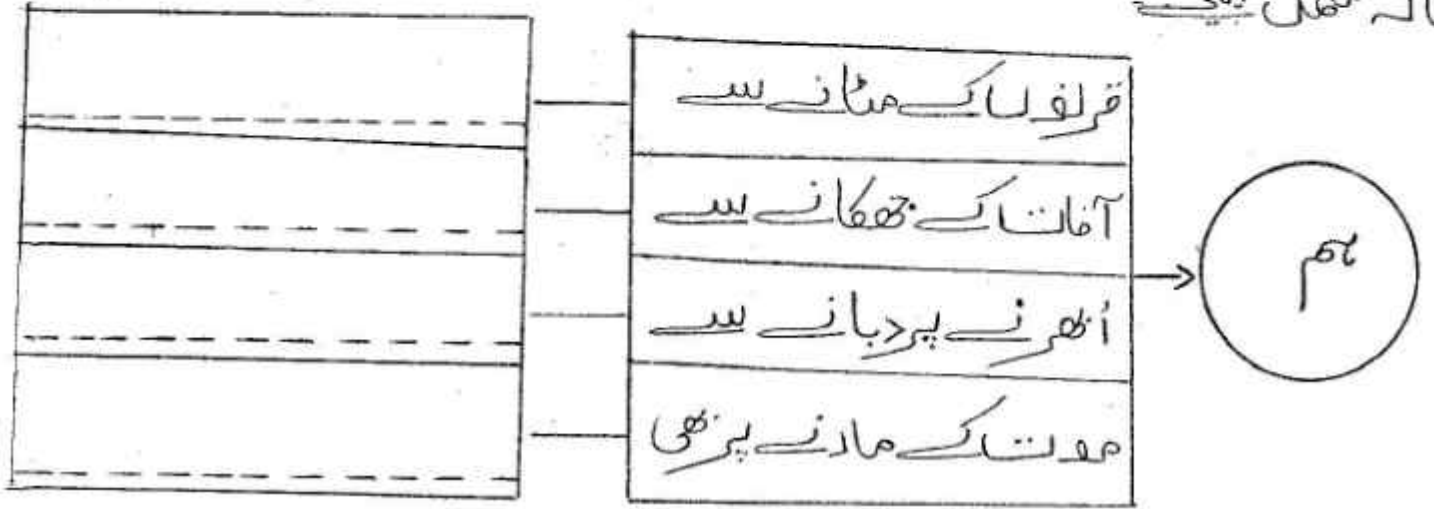 مکمل کیجیے
قرنوں کے مٹانے سے
آفات کے جھکانے سے
ہم
اُبھرنے پر دبانے سے
موت کے مارنے پر بھی